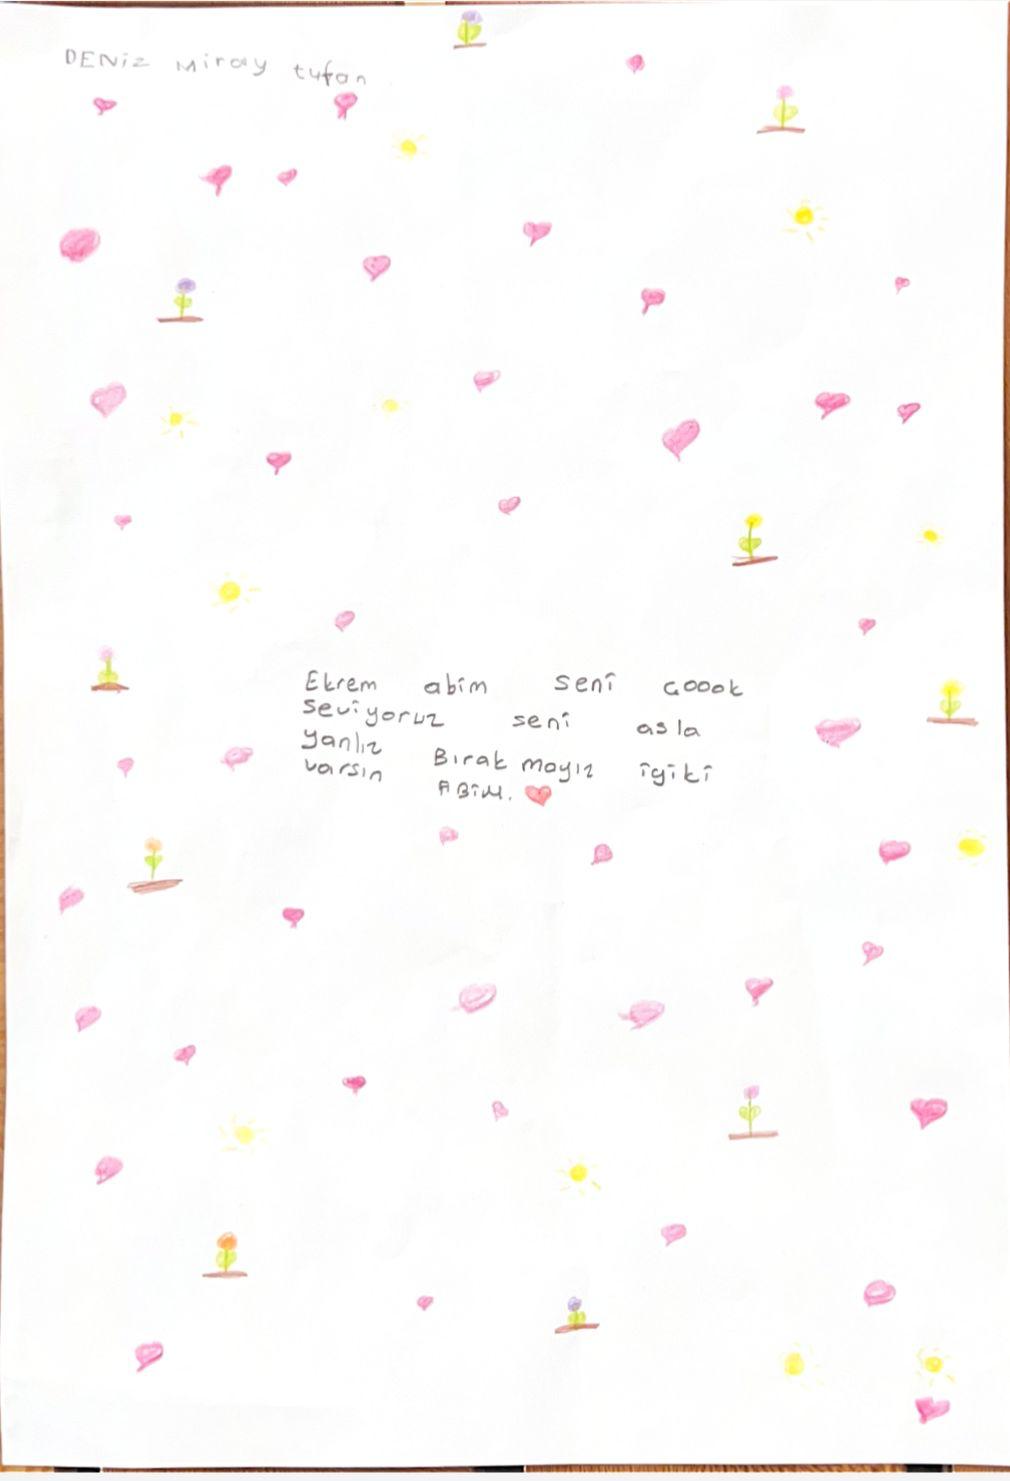 DENiz Miray tufan
Ekrem abim seni çoook
seviyoruz seni asla
yanlız Bırak mayız iyiki
varsın ABiM.